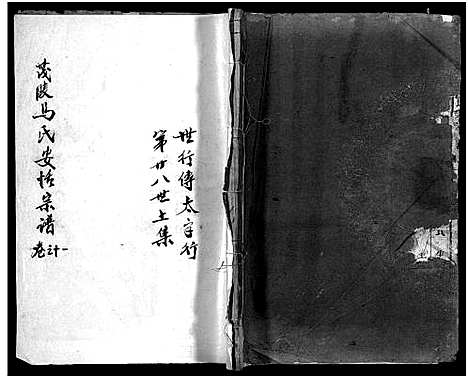 世行傳太字行
第廿八世上集
茂陵马氏安恬宗谱
卷之十一